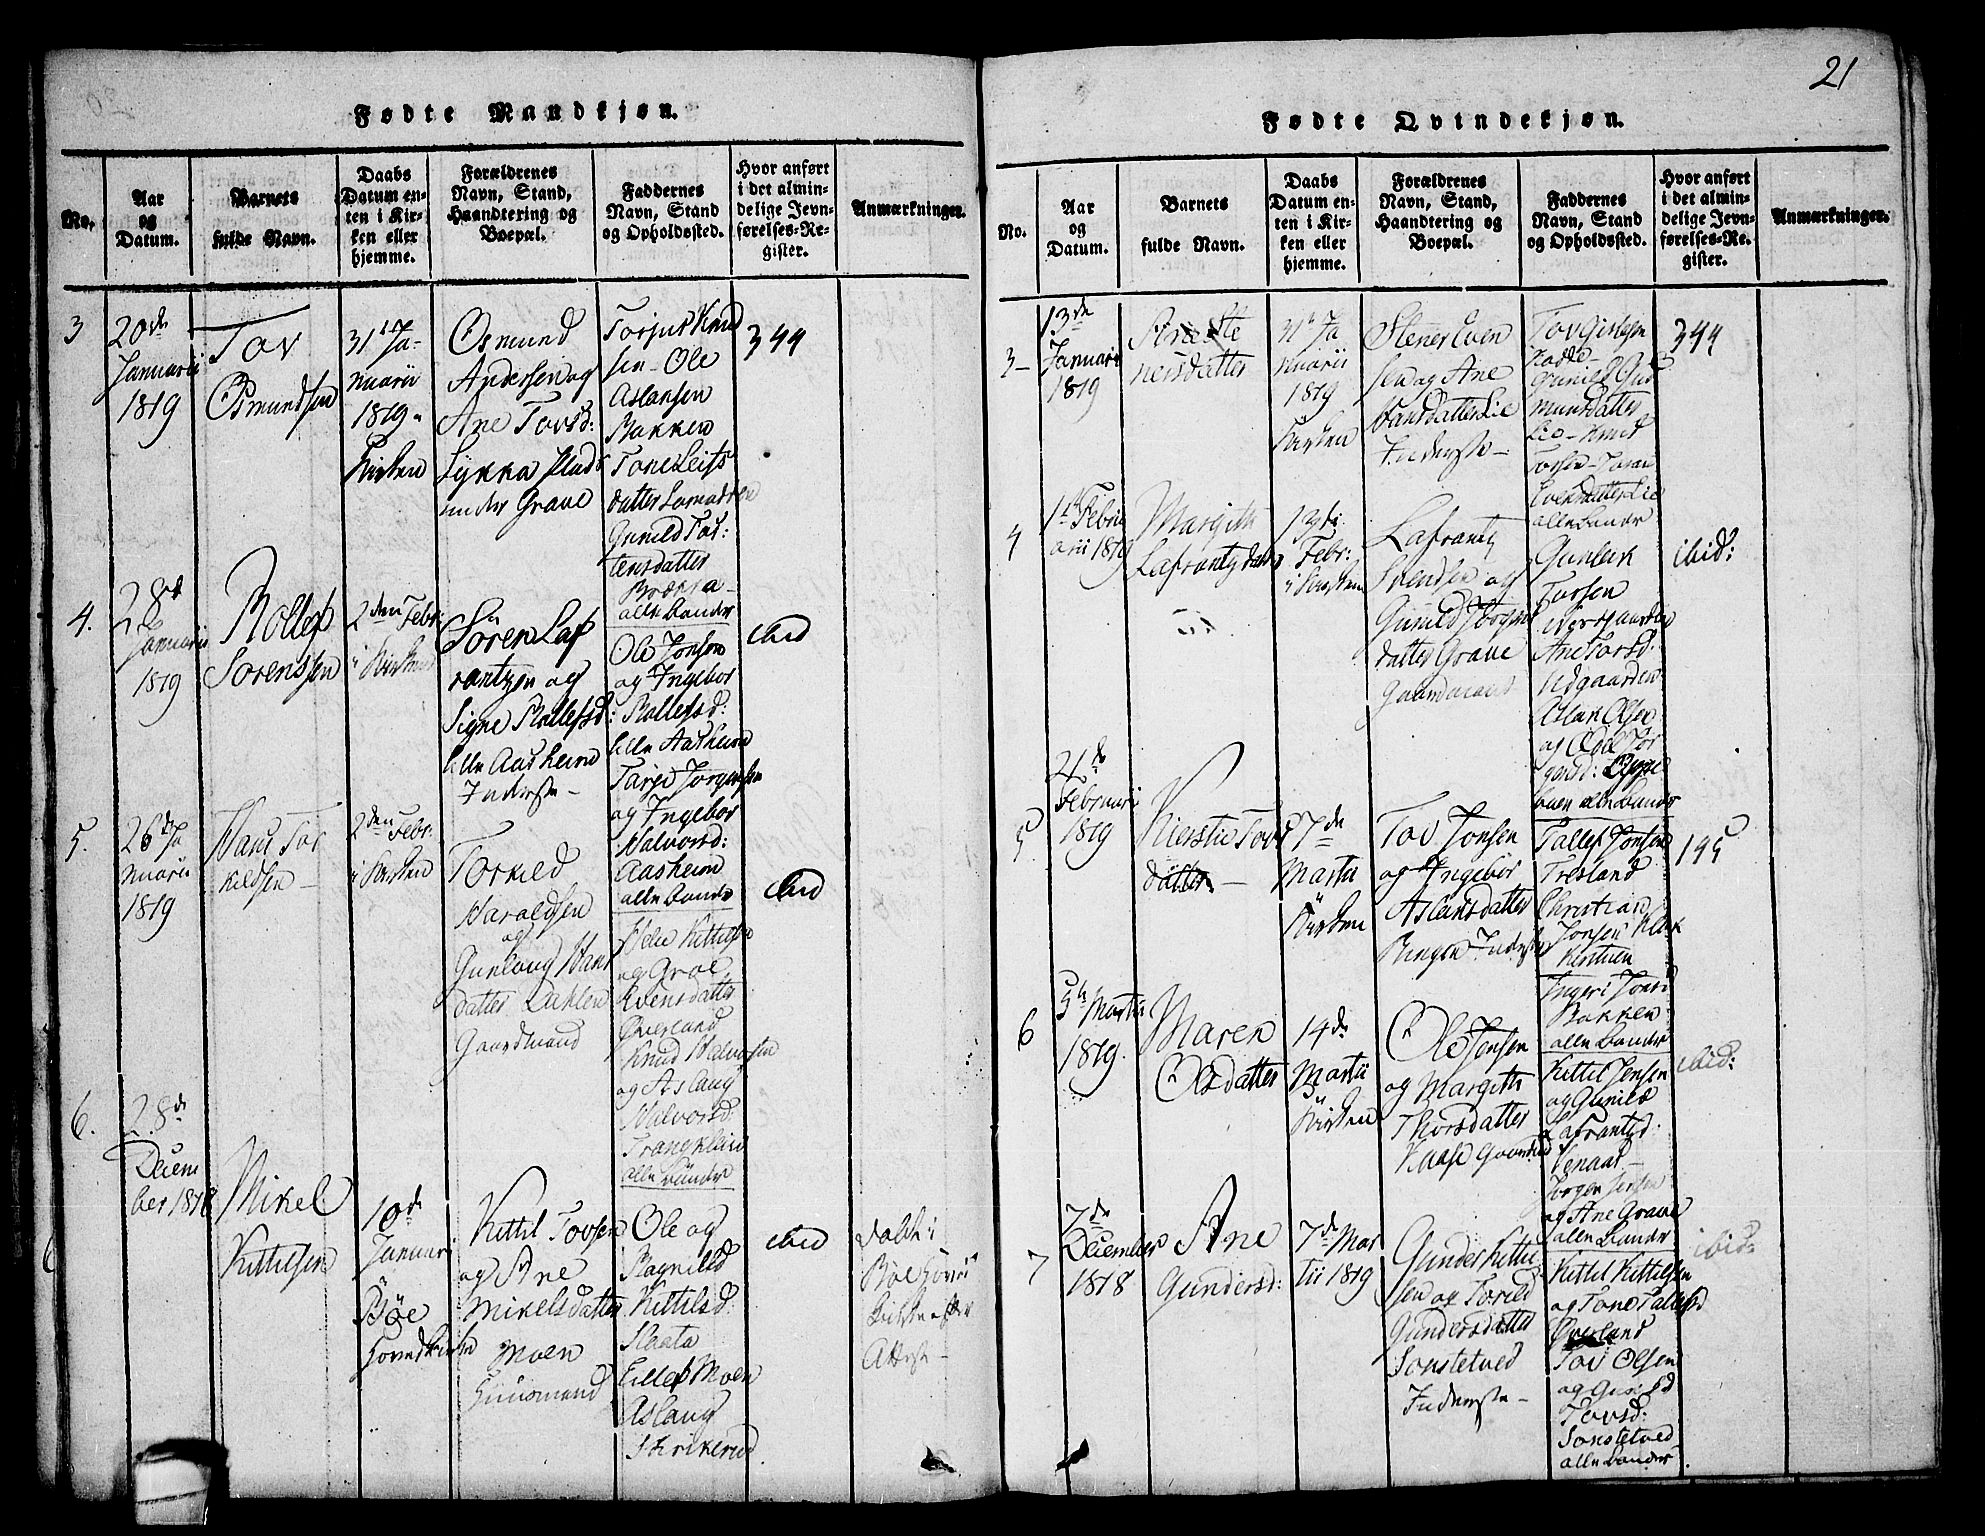 Fødte Mandkjøn.
No.
Aar
og
Datum.
Barnets
fulde Navn.
Daabs
Datum en-
ten i Kir-
ken eller
hjemme.
Forældrenes
Navn, Stand,
Haandtering og
Boepæl.
Faddernes
Navn, Stand
og Opholdssted.
Hvor anført
i det almin-
delige Jevn-
førelses-Re-
gister.
Anmærkninger.
3
20de
Januarii
1819
Tov
Osmundsen
31te Ja-
nuarii
1819
Kirken
Osmund
Andersen og
Ane Tovsd:
Lykka Plads
under Grave
Torjus Knud
sen - Ole
Aslansen
Bakken
Tone Leifs
datter
Gunild Tos:
tensdatter
alle bønder
344
4.
28de
Januarii
1819
Rollef
Sorenssen
2den Febr:
i Kirken
Søren Laf
rantzen og
Signe Rollefsd:
Lille Aasheim
Inderste -
Ole Jonsen
og Ingebor
Rollefsd:
Lille Aasheim
Tarje Jorgensen
og Ingebor
Halvorsd:
Aasheim
alle bønder
ibid
5.
26de Ja
nuarii
1819
Hans Tor
kildsen -
2den Febr:
i Kirken
Torkild
Haroldsen
og
Gunloug Hans
datter Dahlen
Gaardmand
Kittilsen
og Groe
Evensdatter
Øverland
Knud Halvorsen
og Aslaug
Halvorsd:
alle bønder
ibid
6.
28de
Decem
ber 1818
Mikel
Kittilsen
10de
Januari
Bøe
Hovedkirke
Kittil Tovsen
og Ane
Mikelsdatter
Moen
Huusmand
Ole og
Ragnild
Kittilsd:
Slaata
Ellef Moen
Aslaug
ibid
Døbt i
Bøe Hoved
Kirke efter
Attest -
21
Fødte Qvindekjøn.
No.
Aar
og
Datum.
Barnets
fulde Navn.
Daabs
Datum en-
ten i Kir-
ken eller
hjemme.
Forældrenes
Navn, Stand,
Haandtering og
Boepæl.
Faddernes
Navn, Stand
og Opholdssted.
Hvor anført
i det almin-
delige Jevn-
førelses-Re-
gister.
Anmærkninger.
3 -
13de
Januarii
1819
Ane Ste
nersdatter
31te Ja
nuarii
1819
Kirken
Stener Even
sen og Ane
Hansdatter Lie
Inderste -
Tov Gislesen
Gunild Gud
munsdatter
Lie - Knud
Torsen -
Evensdatter Lie
alle bønder
344
4
1te Febru
arii 1819
Margith
Lafrantzdatter
Febr:
i Kirken
Lafrantz
Svendsen og
Gunild Jørgens
datter Grave
Gaardmand
Gunleik
Torsen
Nordgaarden
Ane Torsd:
Udgaarden
Aslak Olsen
og
alle bønder
ibid:
5
21de
Februari
1819
Kierstie Tovs
datter -
7de
Martii
Kirken
Tov Jonsen
og Ingebor
Aslaksdatter
Ringen Inderste
Tallef Jonsen
Tresland
Christian
Jonsen
Ingeri Jonsd
Bakken
alle bønder
195
6
5te Martii
1819.
Maren
Olsdatter
14de
Martii
Kirken
Ole Jensen
og Margith
Thorsdatter
Kaase Gaardmd
Kittil Jensen
og Gunild
Lafrantzd:
Venaas -
Jørgen Jensen
og Ane Grave
alle bønder
ibid:
7
7de
December
1818
Ane
Gundersd:
7de Mar
tii 1819
Gunder Kittil
sen og Torild
Gundersdatter
Sønstetved
Inderste -
Kittil Kittilsen
og Tone Tallefsd
Øverland
Tov Olsen
og Gunild
Tovsd:
Sønstetved
alle bønder.
ibid: